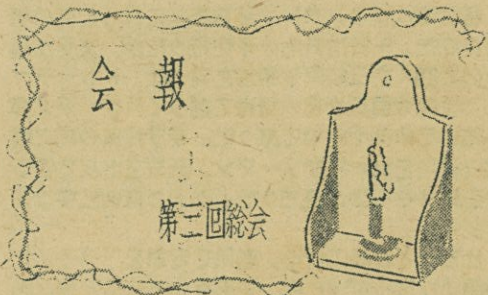 会報
第三回総会